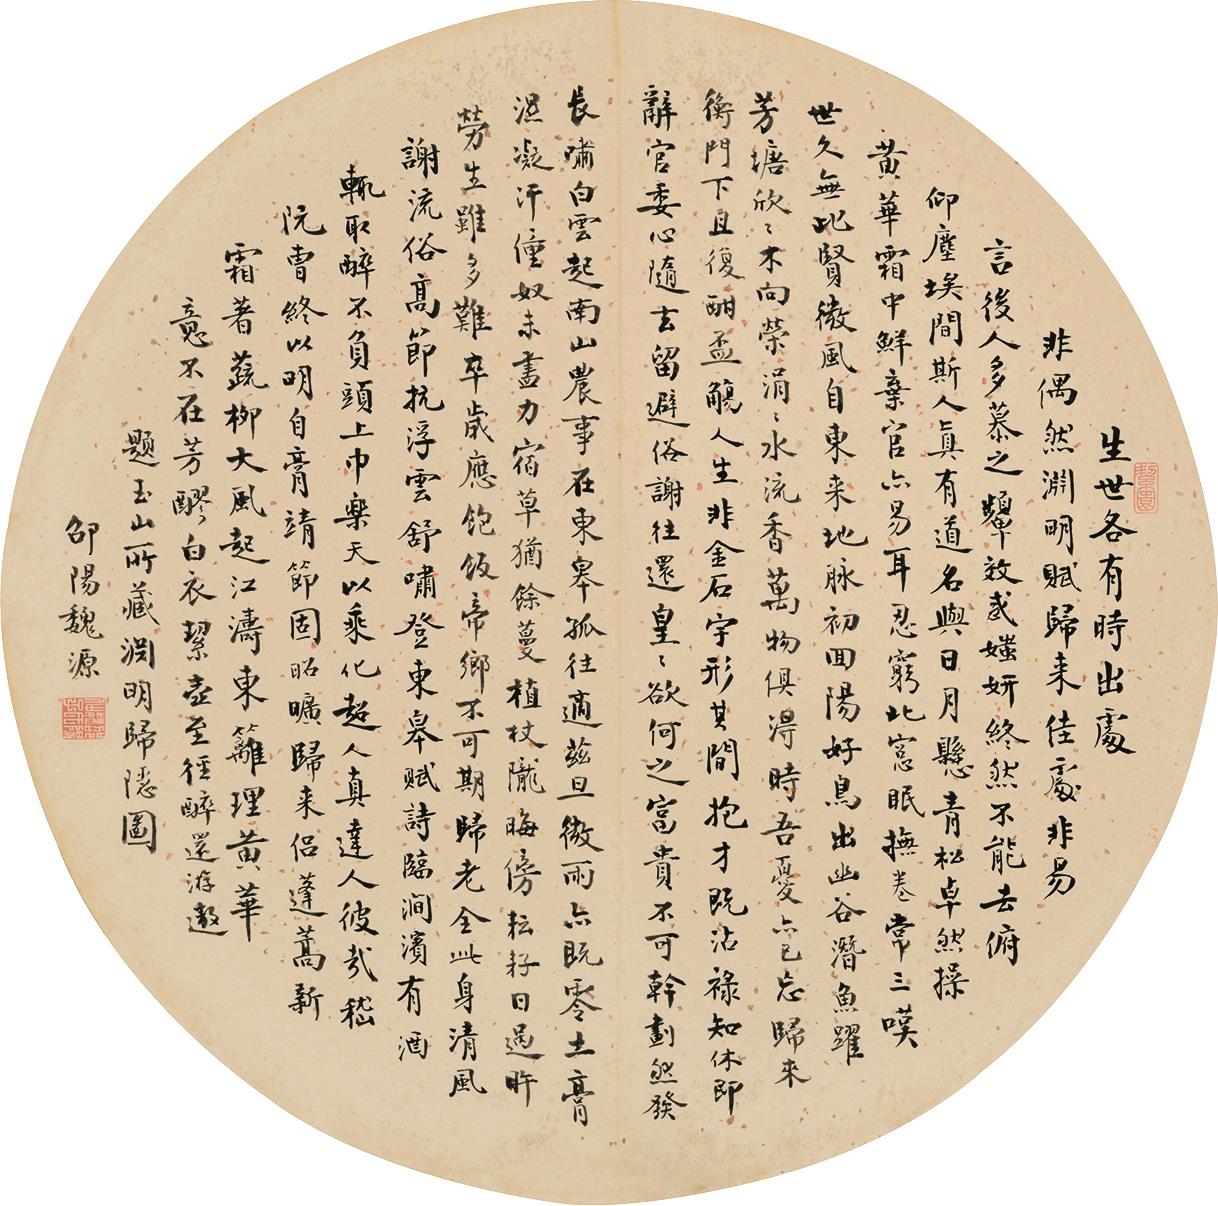 生世各有時出處
非偶然淵明賦歸來佳處非易
言後人多慕之顰效或媸妍終然不能去俯
仰塵埃間斯人真有道名與日月懸青松卓然操
黃華霜中鮮棄官亦易耳忍窮北窓眠撫卷常三嘆
世久無此賢微風自東來地脉初回陽好鳥出幽谷潛魚躍
芳塘欣〻木向榮涓〻水流香萬物俱得時吾憂亦已忘歸來
衡門下且復酣盃觴人生非金石宇形其間抱才既沾祿知休即
辭官委心隨去留避俗謝往還皇〻欲何之富貴不可幹劃然發
長嘯白雲起南山農事在東皋孤往適茲旦微雨亦既零土膏
濕凝汗僮奴未盡力宿草猶餘蔓植杖隴晦傍耘耔日過旰
勞生雖多難卒歲應飽飯帝鄉不可期歸老全此身清風
謝流俗高節抗浮雲舒嘯登東皋賦詩臨澗濱有酒
輒取醉不負頭上巾樂天以乘化超人真達人彼哉嵇
阮曹終以明自膏靖節固昭曠歸來侶蓬蒿新
霜著蔬柳大風起江濤東籬理黃華
意不在芳醪白衣挈壺至徑醉還游遨
題玉山所藏淵明歸隱圖
邵陽魏源